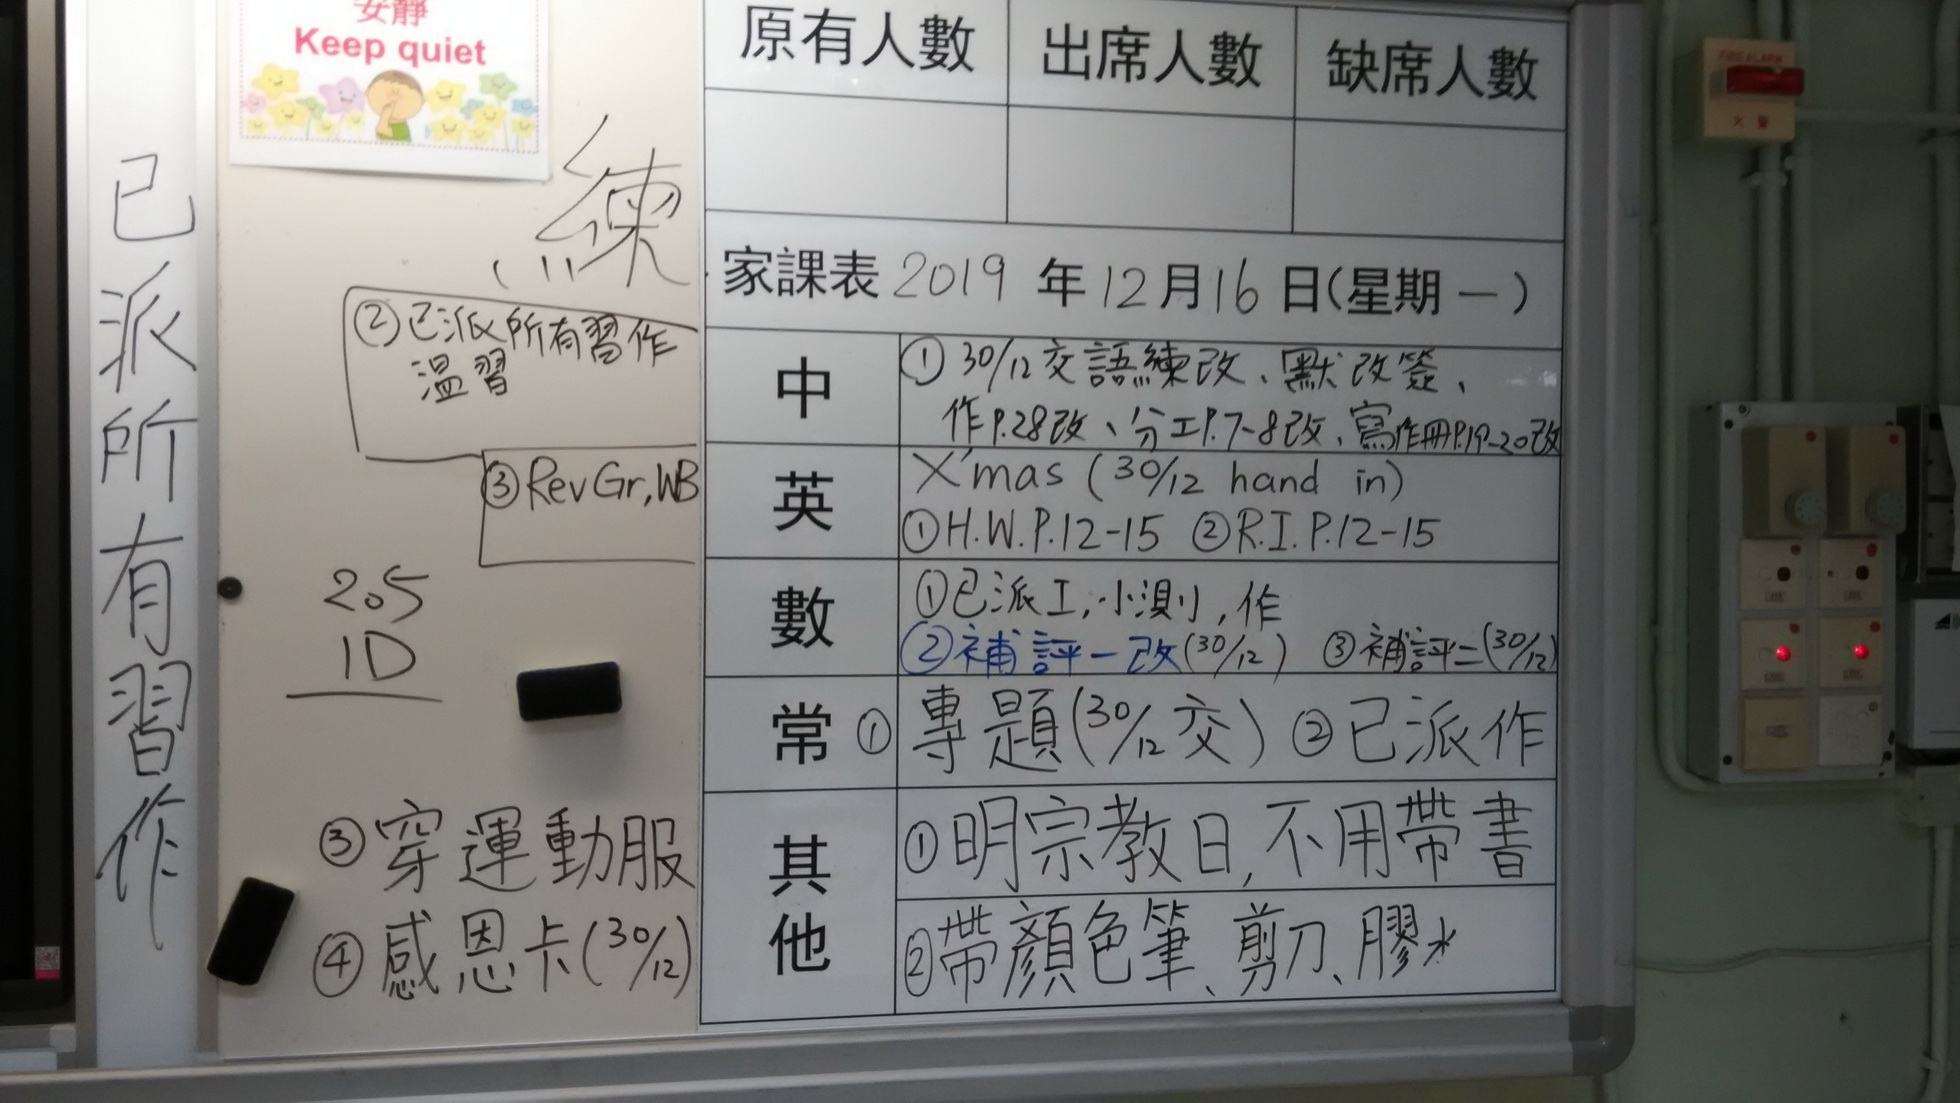 安靜
Keep quiet
已派所有習作
練
原有人數 出席人數 缺席人數
家課表 2019 年 12 月 16 日(星期一)
中
① 30/12 交語練改、默改簽、
作P.28改、分工P.7-8改、寫作冊P.19-20改
② 已派所有習作
溫習
英
X'mas (30/12 hand in)
① H.W.P.12-15 ② R.I.P.12-15
③ Rev Gr, WB
數
① 已派工, 小測, 作
② 補評一改 (30/12) ③ 補評二 (30/12)
205
1D
常
① 專題 (30/12 交) ② 已派作
其他
① 明宗教日, 不用帶書
② 帶顏色筆、剪刀、膠水
③ 穿運動服
④ 感恩卡 (30/12)
FIRE ALARM
火警